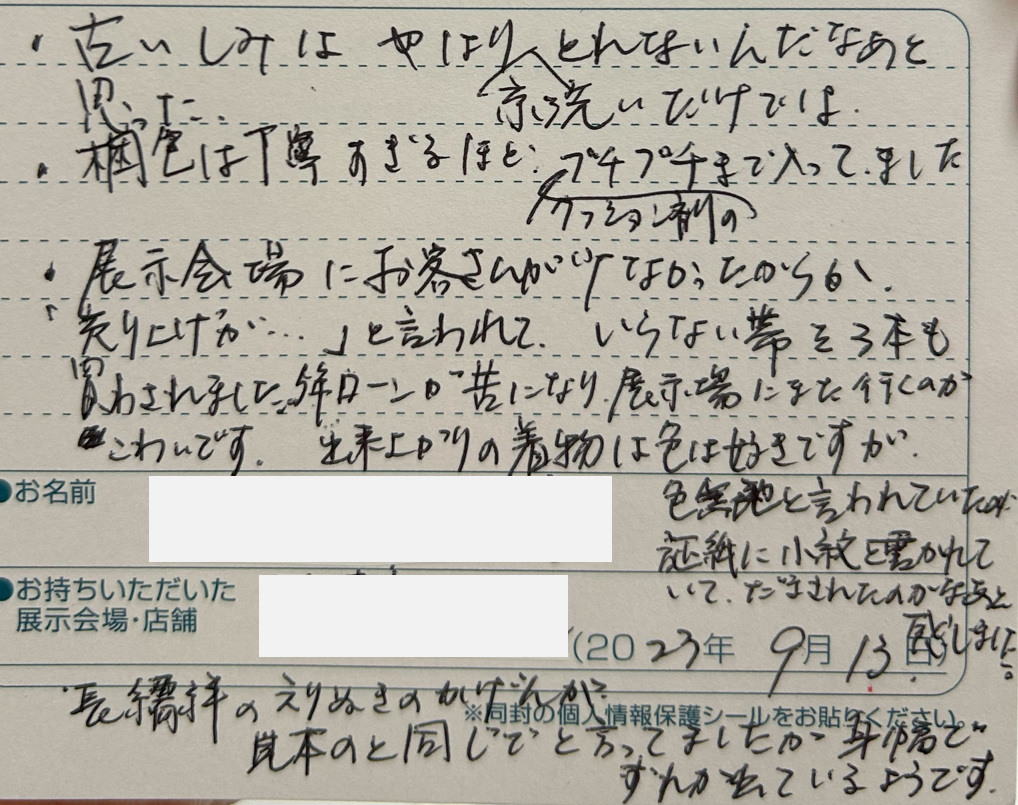 ・古いしみは やはり とれないんだなあと
思った.. 京洗いだけでは.
・梱包は丁寧すぎるほど. プチプチまで入って.ました
クッション剤の
・展示会場にお客さんがいなかったからか、
「売り上げが…」と言われて. いらない帯を3本も
買わされました. ローンが苦になり. 展示場にまた行くのが
こわいです. 出来上がりの着物は色は好きですが.
色無地と言われていたのに
証紙に小紋と書かれて
いて. だまされたのかなあと
感じました.
●お名前
●お持ちいただいた
展示会場・店舗
(2023年 9月 13日)
・長襦袢のえりぬきのかげんが.
※同封の個人情報保護シールをお貼りください。
見本のと同じでと言ってましたが
ずれが出ているようです.